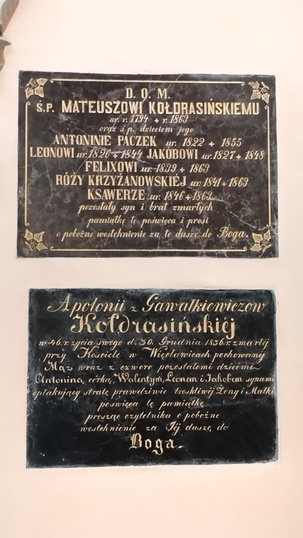 D. O. M.
Ś.P. MATEUSZOWI KOŁDRASIŃSKIEMU
ur. r. 1794 + r. 1863
oraz ś.p. dzieciom jego
ANTONINIE PACZEK ur. 1822 + 1855
LEONOWI ur. 1826 + 1844 JAKÓBOWI ur. 1827 + 1848
FELIXOWI ur. 1839 + 1863
RÓŻY KRZYŻANOWSKIEJ ur. 1841 + 1863
KSAWERZE ur. 1846 + 1863
pozostały syn i brat zmarłych
pamiątkę tę poświęca i prosi
o pobożne westchnienie za te dusze do Boga.
Apolonii z Gawałkiewiczów
Kołdrasińskiéj
w 46. r. życia swego d. 30. Grudnia 1836. r. zmarłéj
przy Kościele w Więcławicach pochowanéj
Mąż wraz z czworo pozostałemi dziećmi
Antoniną córką, Walentym, Leonem i Jakóbem synami
opłakujący stratę prawdziwie troskliwéj Żony i Matki
poświęca tę pamiątkę
prosząc czytelnika o pobożne
westchnienie za Jéj duszę do
Boga.